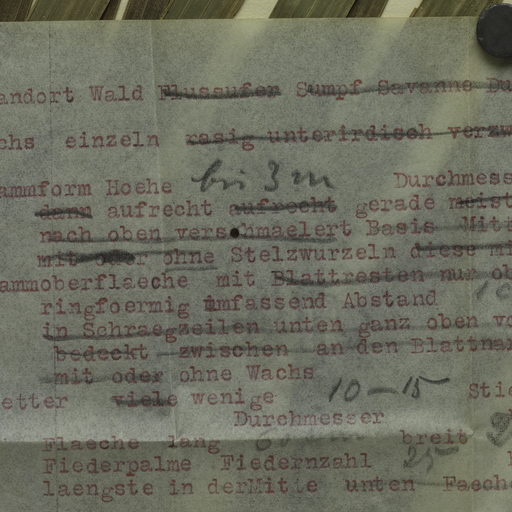 andort Wald Flussufer Sumpf Savanne Du
chs einzeln rasig unterirdisch verzw
ammform Hoehe bis 3 m Durchmess
dann aufrecht aufrecht gerade meist
nach oben verschmaelert Basis Mitt
mit oder ohne Stelzwurzeln diese mi
ammoberflaeche mit Blattresten nur ob
ringfoermig umfassend Abstand 10
in Schraegzeilen unten ganz oben vo
bedeckt zwischen an den Blattnar
mit oder ohne Wachs
etter viele wenige 10-15 Stie
Durchmesser
Flaeche lang breit
Fiederpalme Fiedernzahl 25
laengste in derMitte unten Faeche